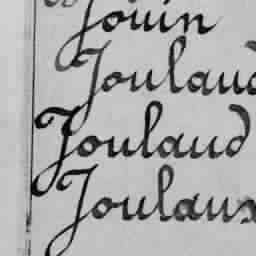 Jouin
Joulaud
Joulaud
Joulaux